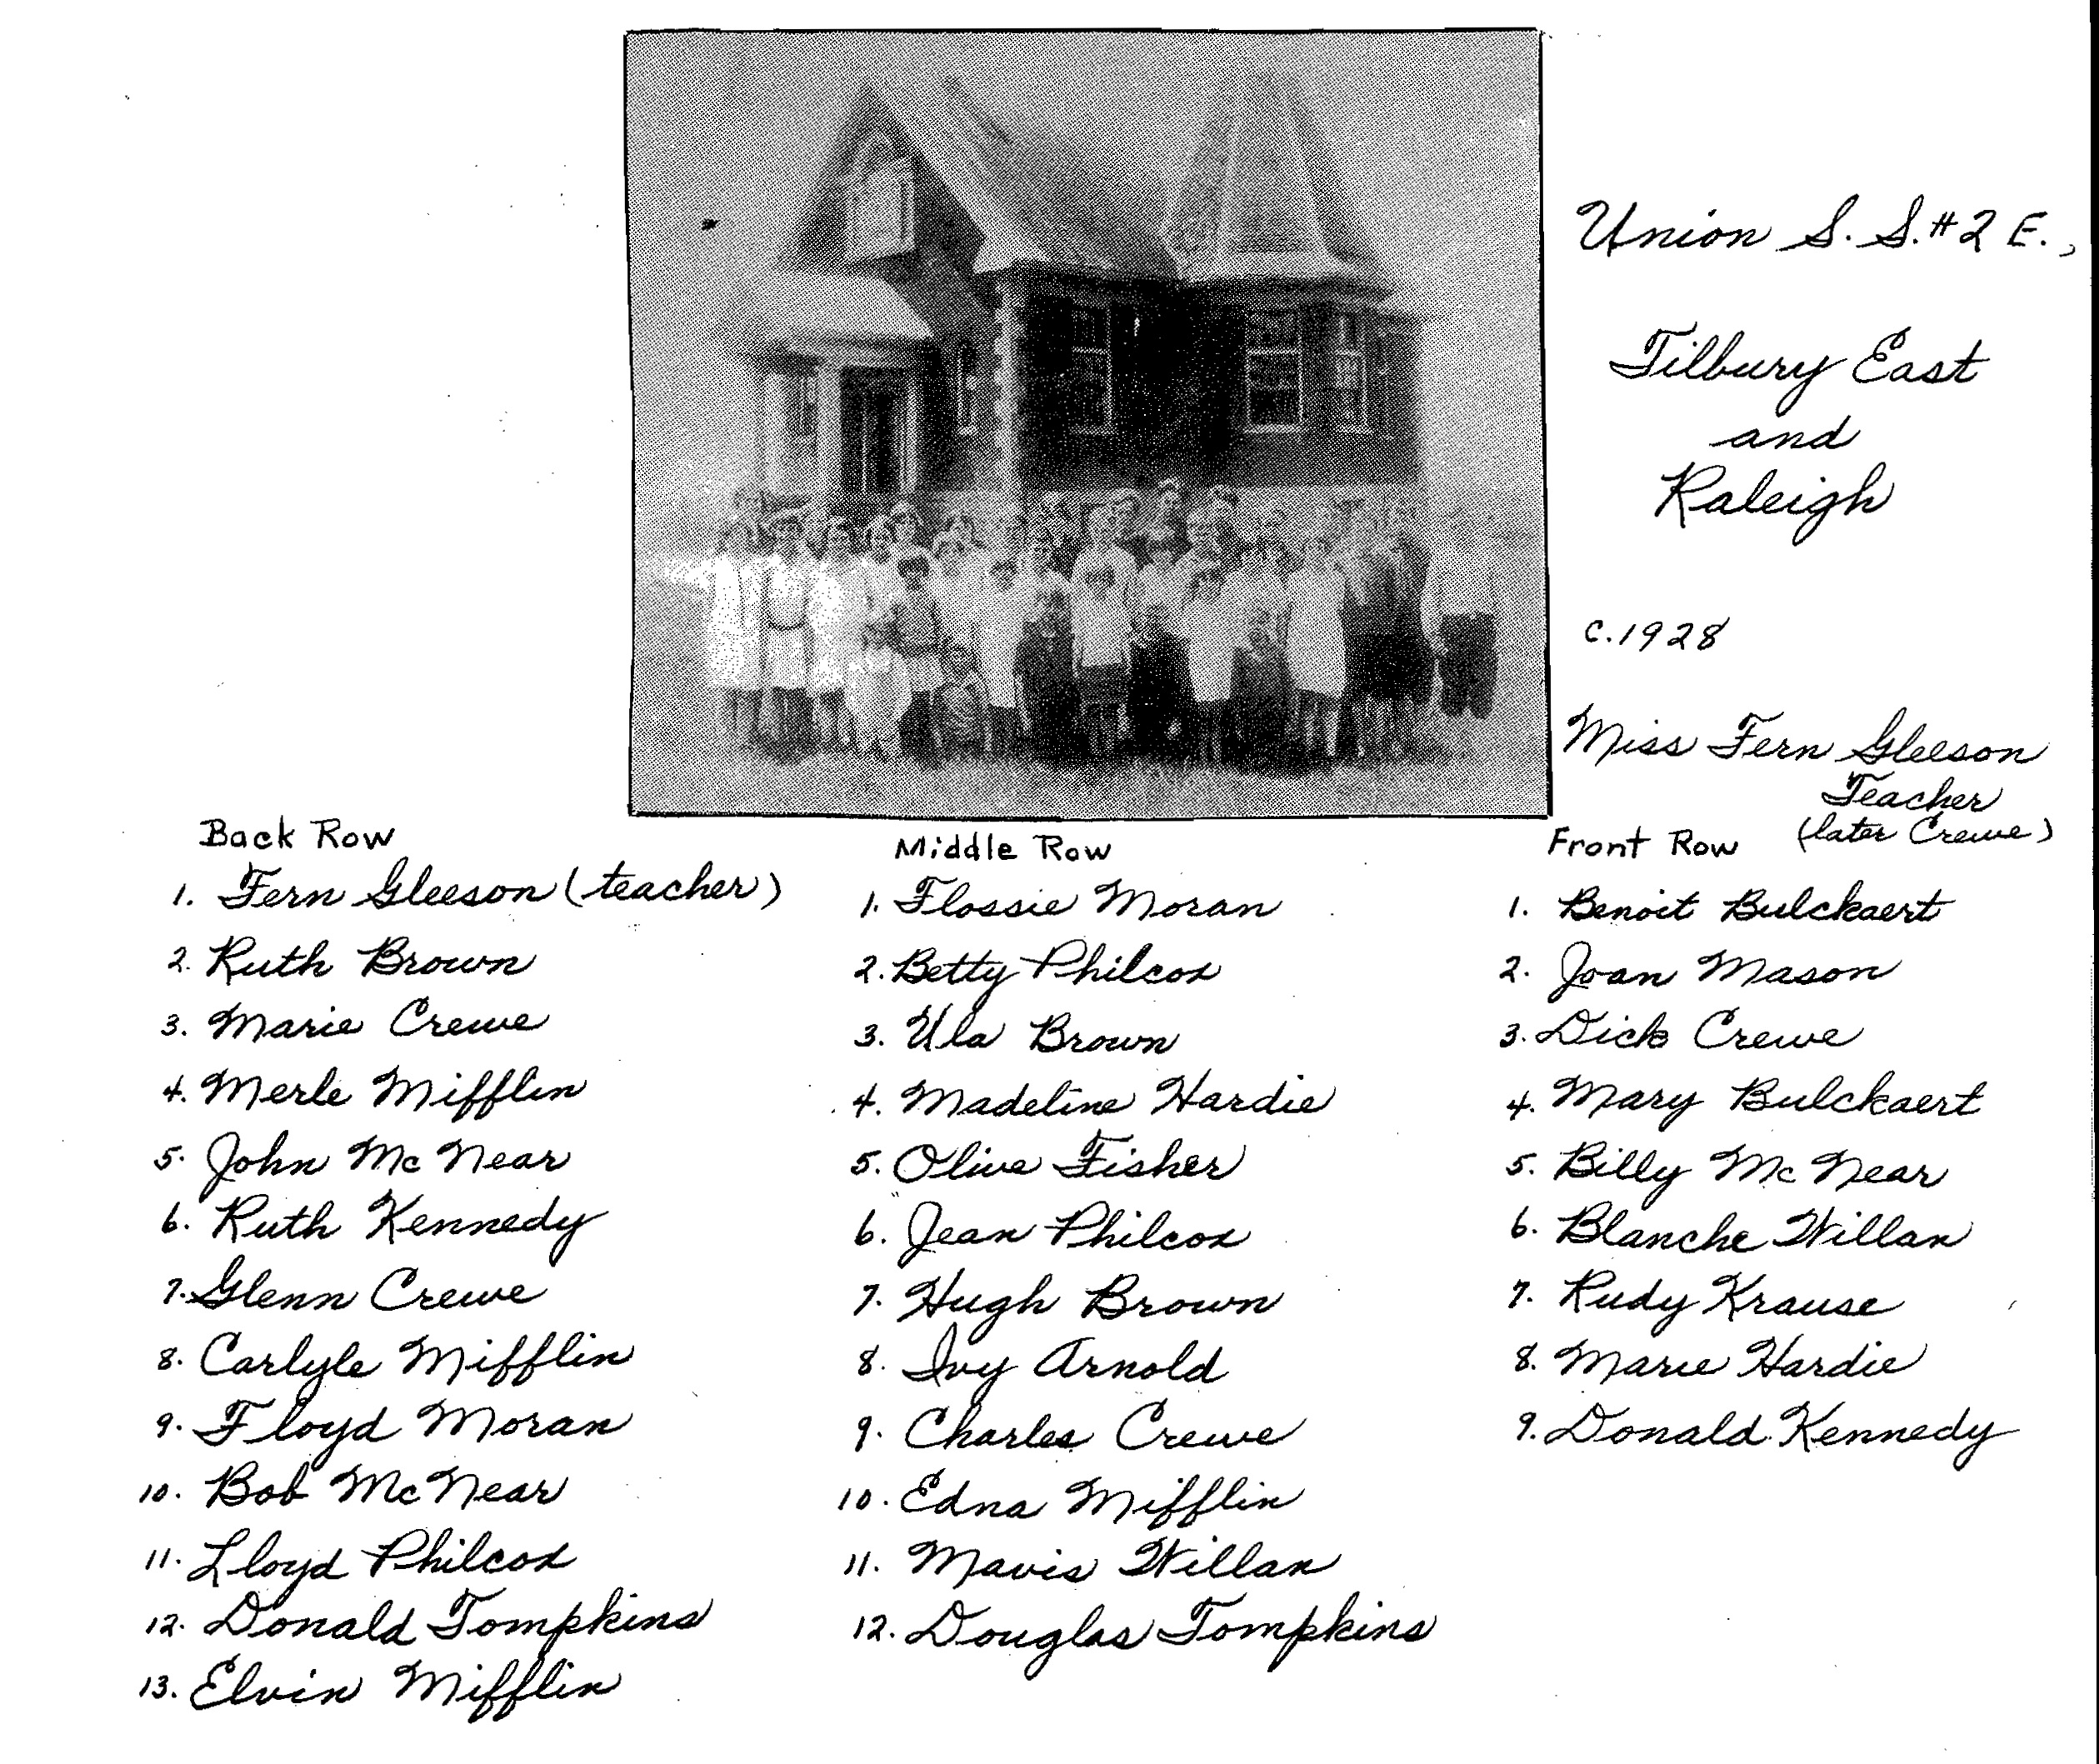 Union S. S. #2 E.,
Tilbury East
and
Raleigh
c. 1928
Miss Fern Gleeson
Teacher
(later Crewe)
Back Row
1. Fern Gleeson (teacher)
2. Ruth Brown
3. Marie Crewe
4. Merle Mifflin
5. John Mc Near
6. Ruth Kennedy
7. Glenn Crewe
8. Carlyle Mifflin
9. Floyd Moran
10. Bob McNear
11. Lloyd Philcox
12. Donald Tompkins
13. Elvin Mifflin
Middle Row
1. Flossie Moran
2. Betty Philcox
3. Ula Brown
4. Madeline Hardie
5. Olive Fisher
6. Jean Philcox
7. Hugh Brown
8. Ivy Arnold
9. Charles Crewe
10. Edna Mifflin
11. Mavis Willan
12. Douglas Tompkins
Front Row
1. Benoit Bulckaert
2. Joan Mason
3. Dick Crewe
4. Mary Bulckaert
5. Billy Mc Near
6. Blanche Willan
7. Rudy Krause
8. Marie Hardie
9. Donald Kennedy